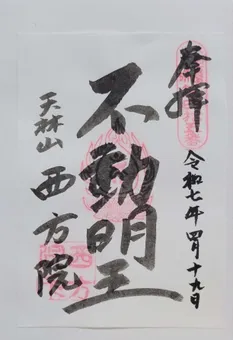 奉拝
令和七年四月十九日
不動明王
天林山
西方院
西方